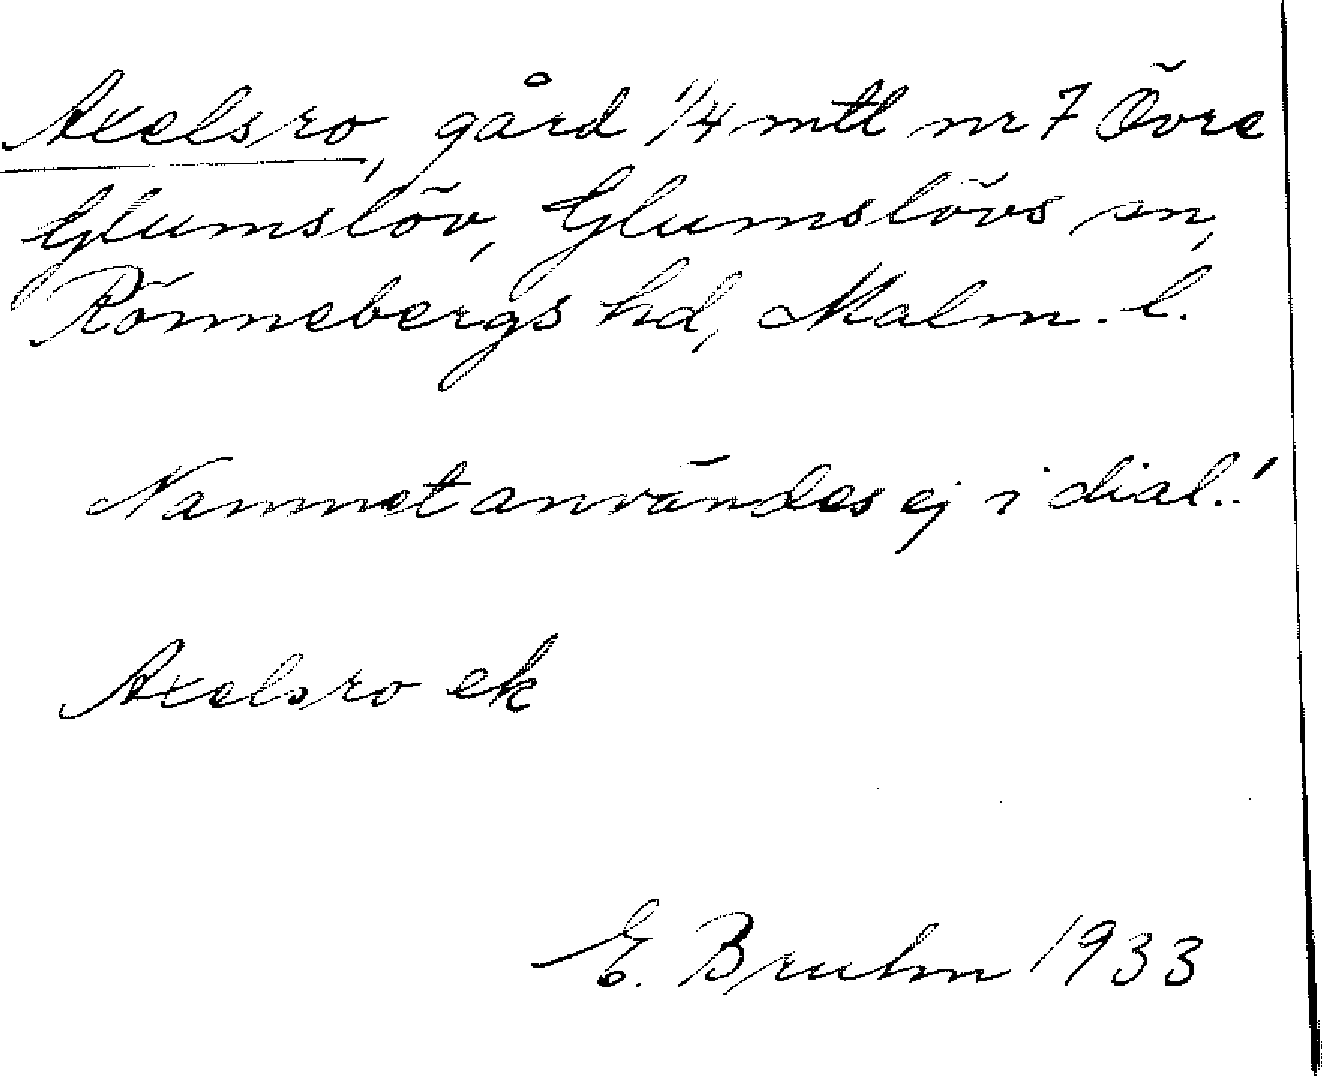 Axelsro, gård 1/4 mtl nr 7 Övre
Glumslöv, Glumslövs sn,
Rönnebergs hd, Malm. l.
Namnet användes ej i dial.!
Axelsro ek
E. Bruhn 1933